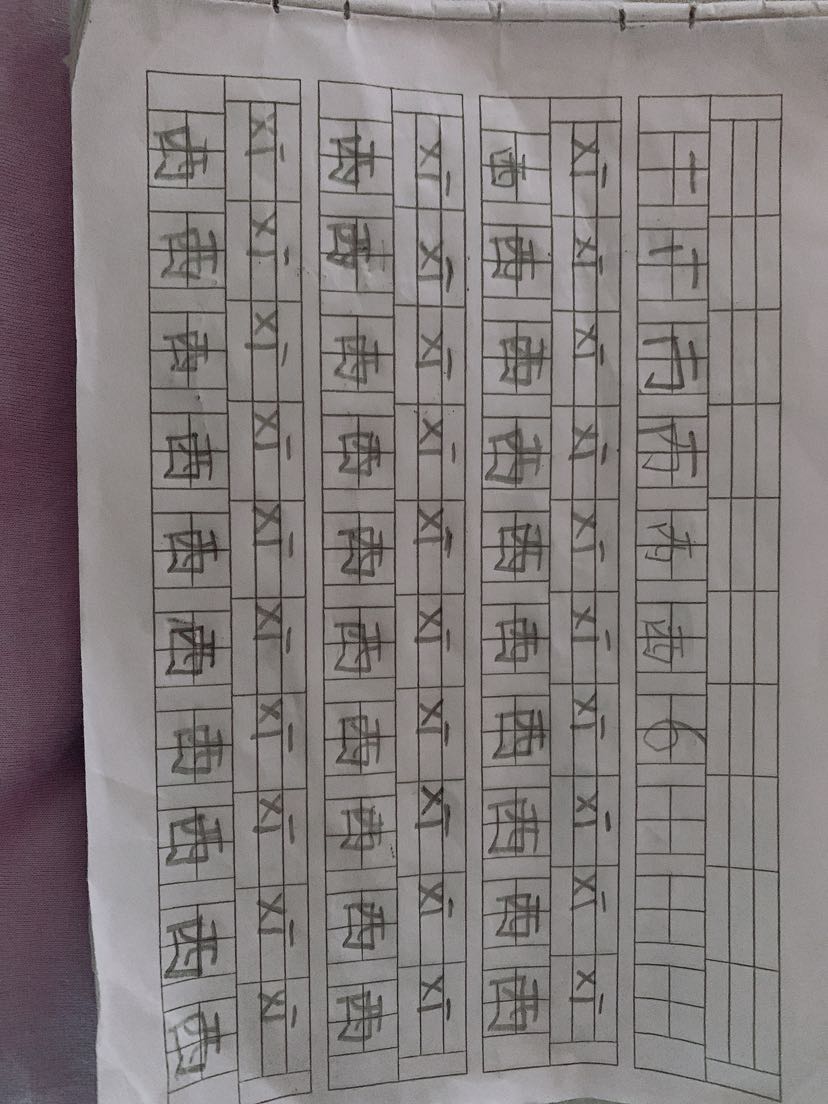 一 西 6
xī xī xī xī xī xī xī xī xī xī
西 西 西 西 西 西 西 西 西 西
xī xī xī xī xī xī xī xī xī xī
西 西 西 西 西 西 西 西 西 西
xī xī xī xī xī xī xī xī xī xī
西 西 西 西 西 西 西 西 西 西